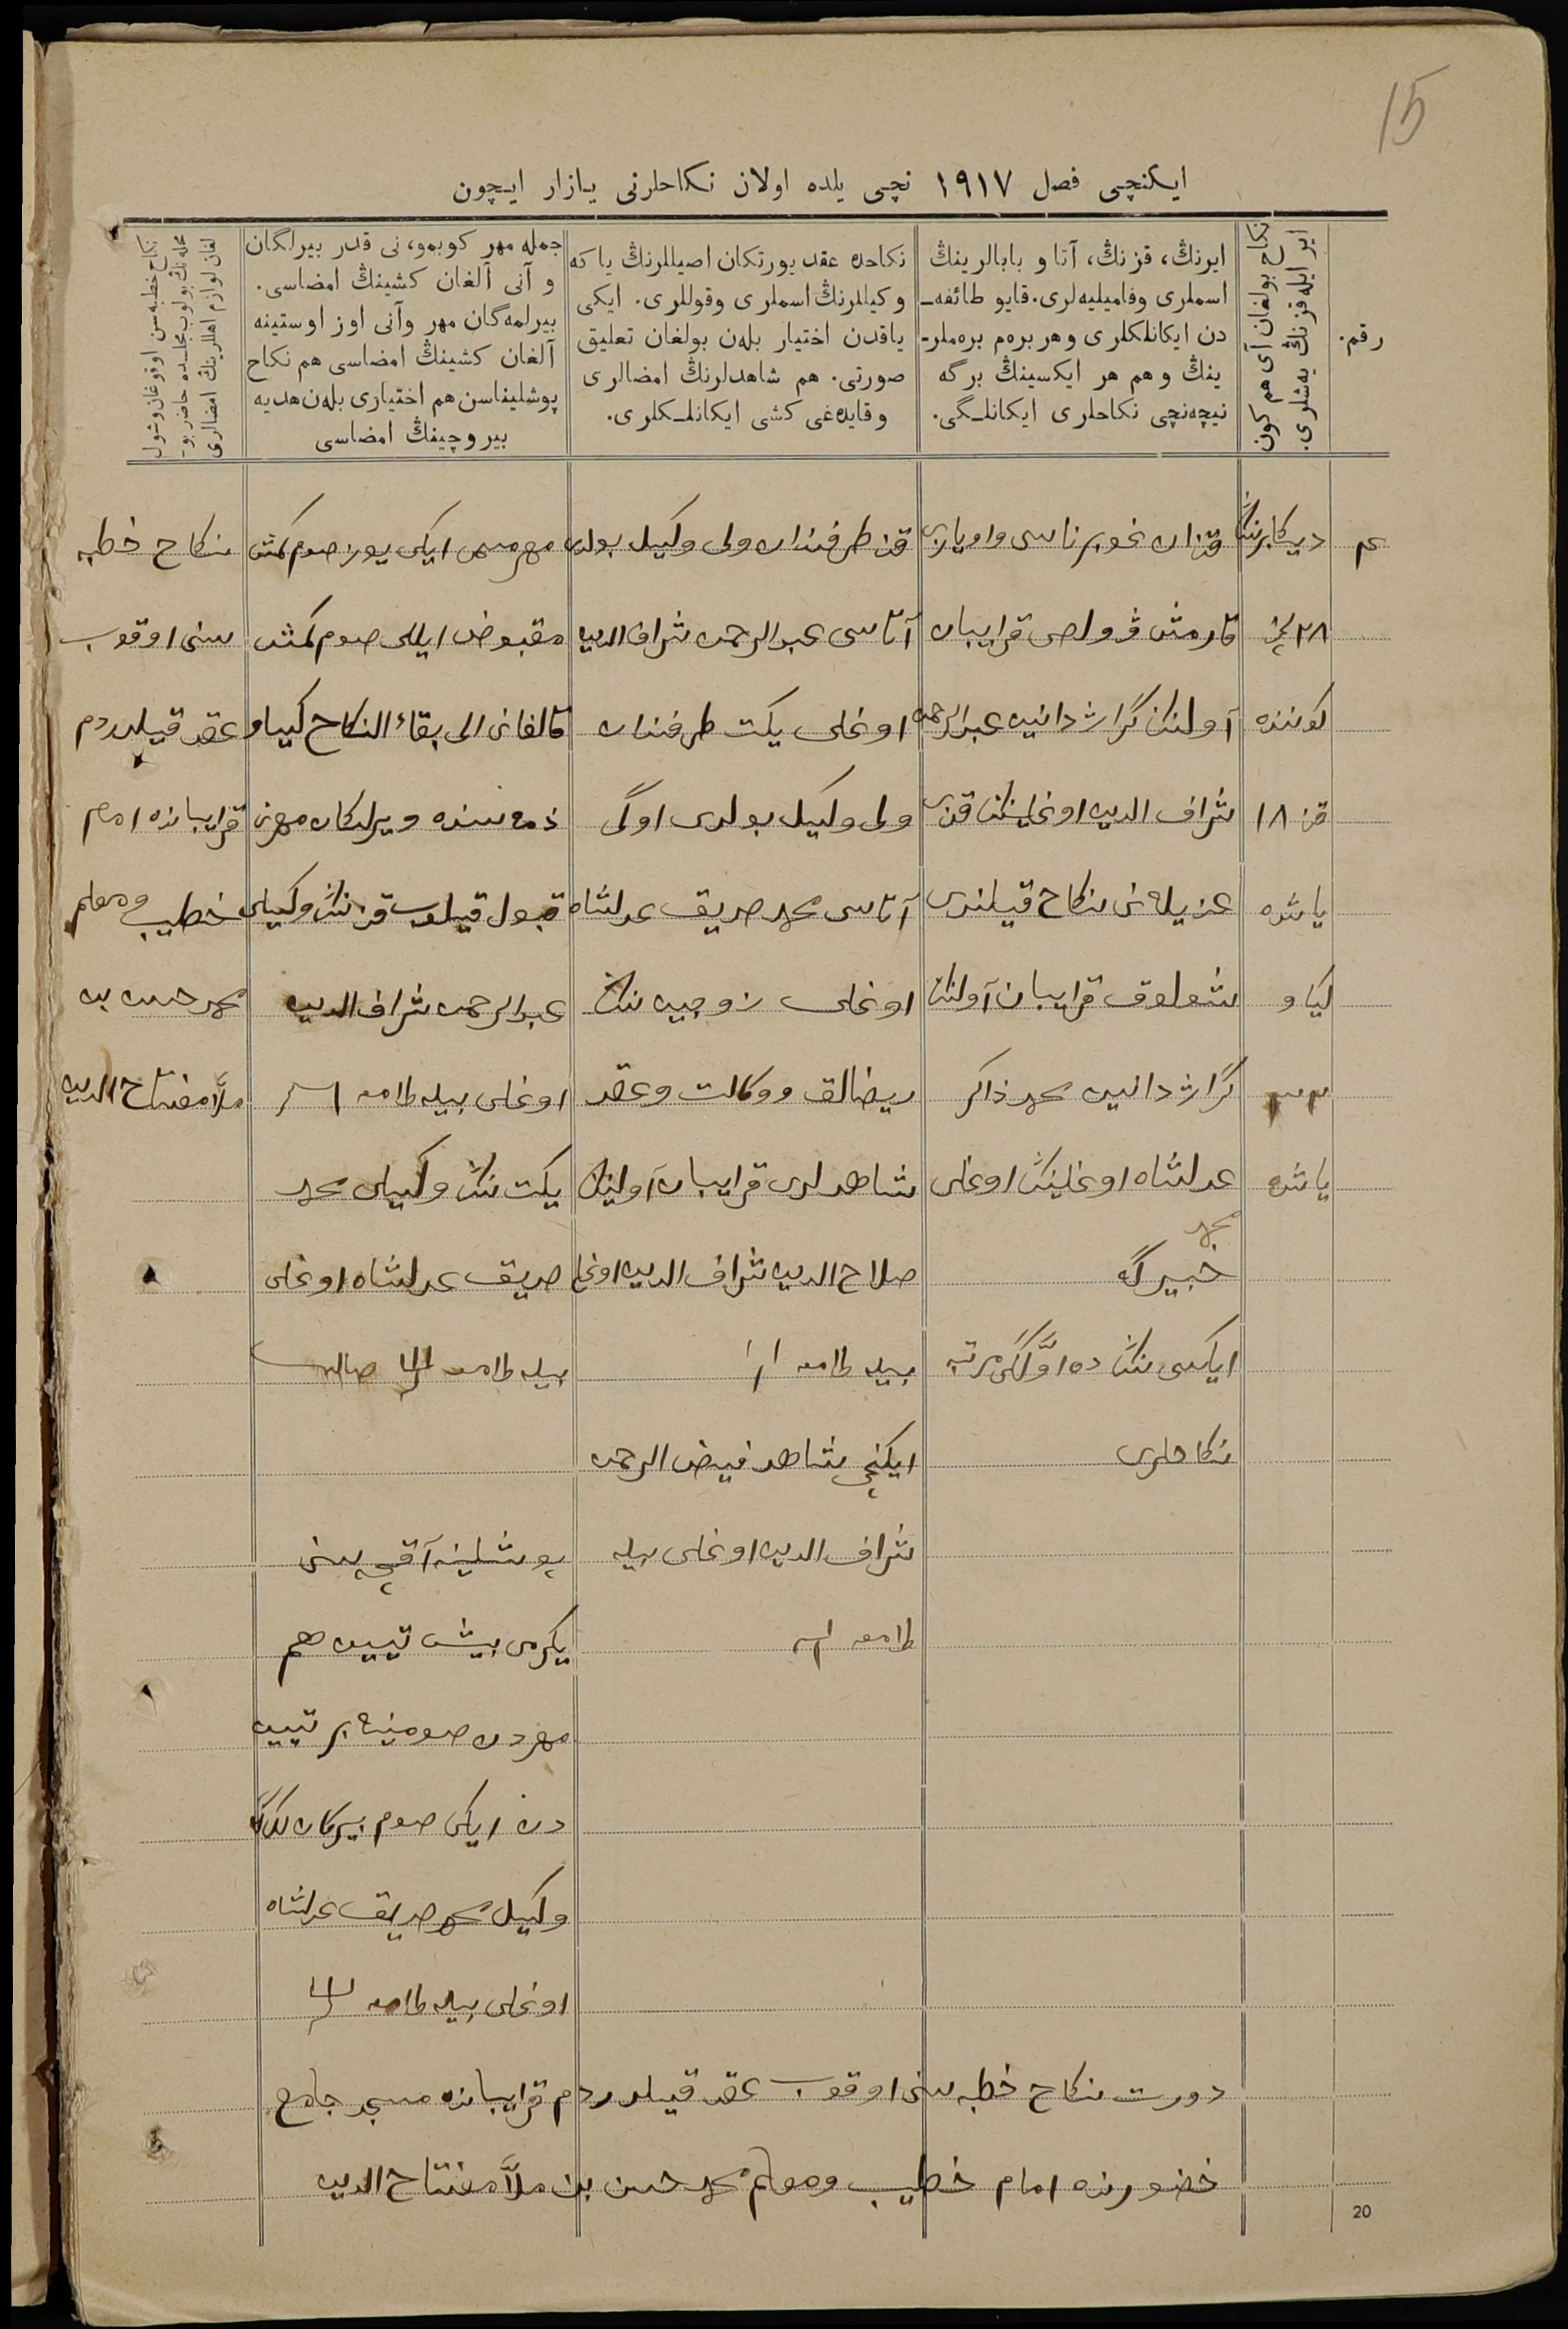 15
ایکنچی فصل ۱۹۱۷ نچی یلده اولان نکاحلرنی یازار ایچون
رقم.
نکاح بولغان آی هم کون
ایر ایله قزنڭ یه‌شلری.
ایرنڭ، قزنڭ، آتا و بابالرینڭ
اسملری وفامیلیه‌لری. قایو طائفه‌ـ
دن ایکانلکلری وهر بره‌م بره‌ملرـ
ینڭ وهم هر ایکسینڭ برگه
نیچه‌نچی نکاحلری ایکانلـگی.
نکاحده عقد یورتکان اصیللرنڭ یا که
وکیللرنڭ اسملری وقوللری. ایکی
یاقدن اختیار بله‌ن بولغان تعلیق
صورتی. هم شاهدلرنڭ امضالری
وقایده‌غی کشی ایکانلـکلری.
جمله مهر کوبمو، نی قدر بیرلگان
و آنی آلغان کشینڭ امضاسی.
بیرلمه‌گان مهر وآنی اوز اوستینه
آلغان کشینڭ امضاسی هم نکاح
پوشلیناسن هم اختیاری بله‌ن هدیه
بیروچینڭ امضاسی
نکاح خطبه‌سن اوقوغان وشول
محله‌نڭ بولوب مجلـده حاضر بوـ
لغان لوازم اهللرینڭ امضالری
دیکابرنڭ
۲۸ نچی
کوننده
قز ۱۸
یاشده
کیاو
یاشده
قزان غوبرناسی واویازی
قارمش ڤولصی قرایبان
آولنڭ گراژدانین عبدالرحمن
شراف الدین اوغلینڭ قزی
عزیله‌نی نکاح قیلندی
شعلوق قرایبان آولنڭ
گراژدانین محمد ذاکر
عدلشاه اوغلینڭ اوغلی
محمد
خبیرگه
ایکسی‌نڭ ده اوّلگی مرتبه
نکاحلری
قز طرفندان ولی وکیل بولدی
آتاسی عبدالرحمن شراف الدین
اوغلی یکت طرفندان
ولی وکیل بولدی اوگی
آتاسی محمد صدیق عدلشاه
اوغلی زوجین‌نڭ
ریضالق ووکالت وعقد
شاهدلری قرایبان آولینڭ
صلاح الدین شراف الدین اوغلی
بیله طامعه
ایکنچی شاهد فیض الرحمن
شراف الدین اوغلی بیله
طامعه
مهرمسمی ایکی یوز صوم کمش
مقبوض ایللی صوم کمش
قالغانی الی بقاء النکاح کیاو
ذمه‌سنده ویرلکان مهرنی
قبول قیلوب قزنڭ وکیلی
عبدالرحمن شراف الدین
اوغلی بیله طامعه
یکت‌نڭ وکیلی محمد
صدیق عدلشاه اوغلی
بیله طامعه
پوشلینه آقچه‌سنی
یکرمی بیش تیین هم
مهردن صومینه بر تیین
دن ایکی صوم بیرکان
وکیل محمد صدیق عدلشاه
اوغلی بیله طامعه
نکاح خطبه
سنی اوقوب
عقد قیلدردم
قرایبانده امام
خطیب ومعلم
محمد حسن بن
ملاّ مفتاح الدین
دورت نکاح خطبه‌سنی اوقوب عقد قیلدردم قرایبانده مسجد جامع
حضورنده امام خطیب ومعلم محمد حسن بن ملاّ مفتاح الدین
20